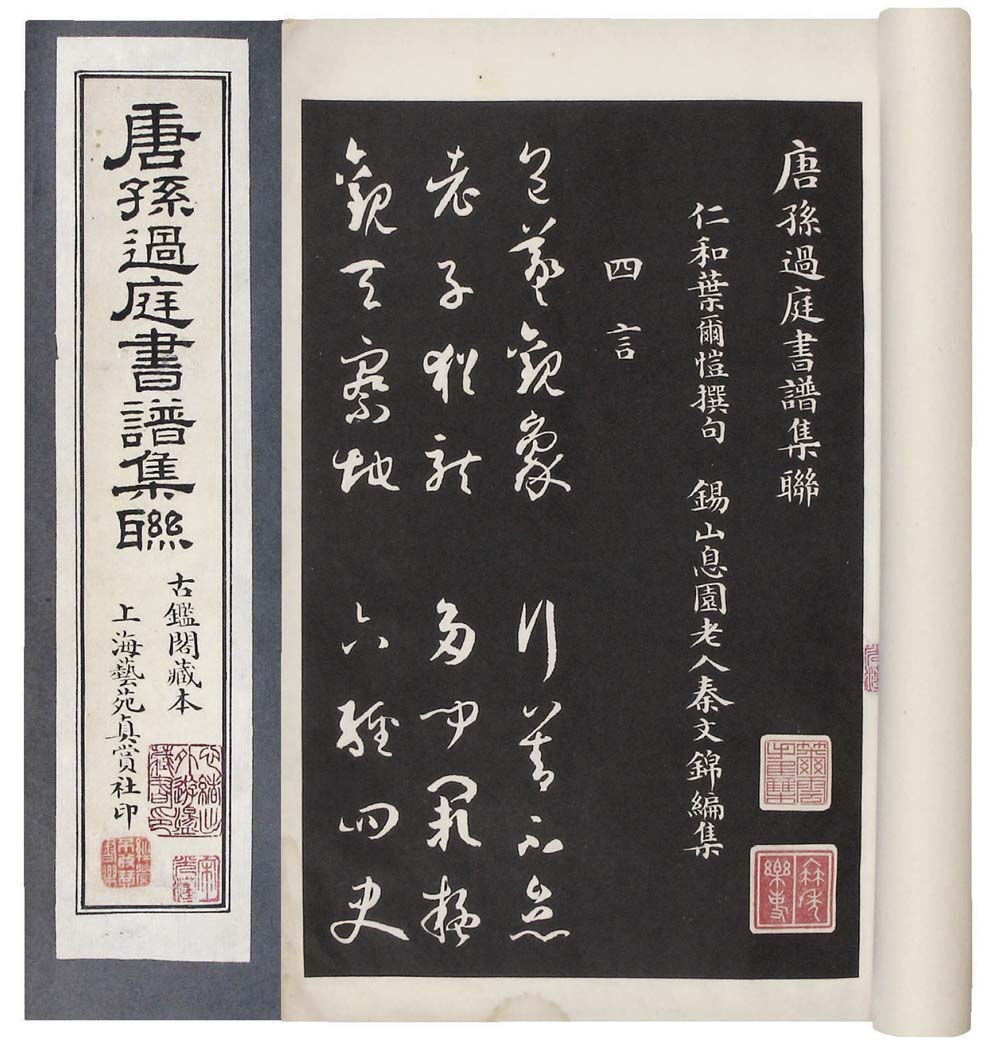 唐孫過庭書譜集聯
古鑑閣藏本
上海藝苑真賞社印
唐孫過庭書譜集聯
仁和葉爾愷撰句 錫山息園老人秦文錦編集
四言
包羲觀象
老子猶龍
觀天察地 六經四史